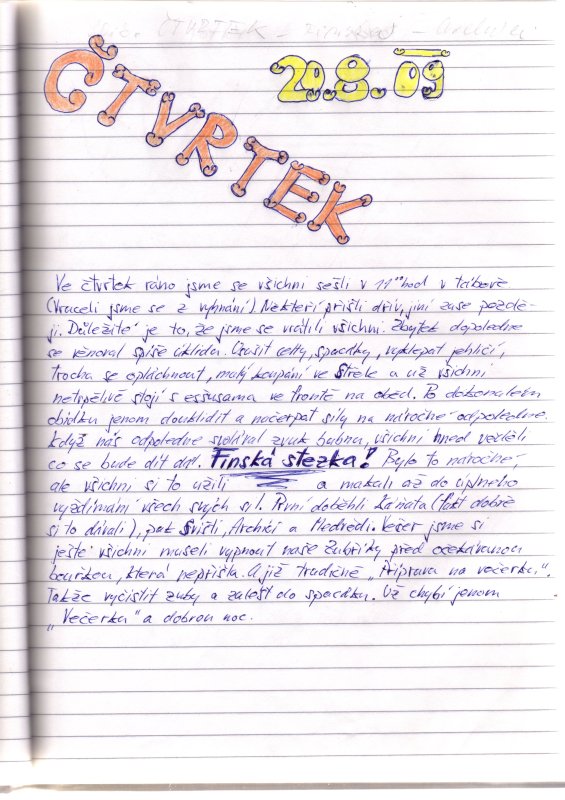 ČTVRTEK
20.8.09
ČTVRTEK
Ve čtvrtek ráno jsme se všichni sešli v 11⁰⁰ hod v táboře
(Vraceli jsme se z vyhnání) Někteří přišli dřív, jiní zase pozdě-
ji. Důležité je to, že jsme se vrátili všichni. Zbytek dopoledne
se věnoval spíše úklidu. Usušit celty, spacáky, vyklepat jehličí,
trocha se opláchnout, malý koupání ve Střele a už všichni
netrpělivě stojí s esšusama ve frontě na oběd. Po dokonalém
obídku jenom douklidit a načerpat síly na náročné odpoledne.
Když nás odpoledne svolával zvuk bubnu, všichni hned věděli
co se bude dít dál. Finská stezka! Bylo to náročné
ale všichni si to užili a makali až do úplného
vyždímání všech svých sil. První doběhli Káňata (fakt dobře
si to dávali), pak Svišti, Archíci a Medvědi. Večer jsme si
ještě všichni museli vypnout naše Zubříky před očekávanou
bouřkou, která nepřišla. A již tradičně „Příprava na večerku".
Takže vyčistit zuby a zalést do spacáku. Už chybí jenom
„Večerka" a dobrou noc.